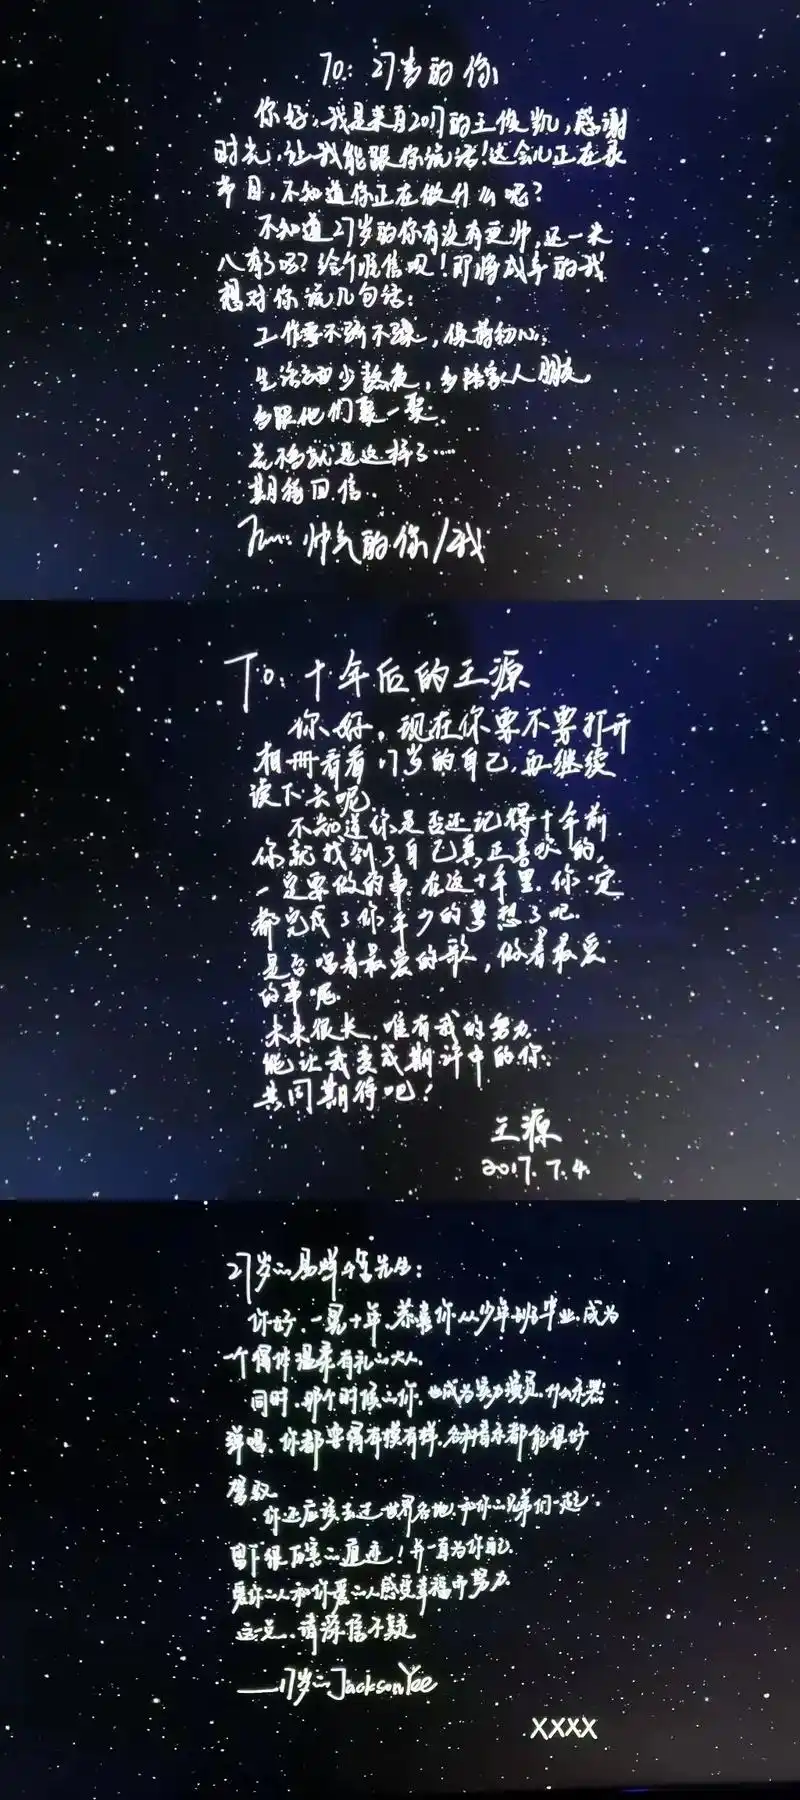 TO：27岁的你
你好，我是来自2017的王俊凯，感谢
时光，让我能跟你说话！这会儿正在录
节目，不知道你正在做什么呢？
不知道27岁的你有没有更帅，还一米
八有了吗？给个准信呗！即将成年的我
想对你说几句话：
工作要不骄不躁，保持初心。
生活方面少熬夜，多陪家人朋友，
多跟他们聚一聚。
差不多就是这样了……
期待回信。
帅气的你/我
To：十年后的王源
你好，现在你要不要打开
相册看看17岁的自己，再继续
读下去呢
不知道你是否还记得十年前
你就找到了自己真正喜欢的，
一定要做的事，在这十年里，你一定
都完成了你年少的梦想了吧。
是否唱着最爱的歌，做着最爱
的事呢
未来很长，唯有我的努力
能让我变成期许中的你。
共同期待吧！
王源
2017.7.4.
27岁的易烊千玺先生：
你好，一晃十年，恭喜你从少年班毕业，成为
一个得体温柔有礼的大人。
同时，那个时候的你，也成为实力演员，什么乐器
弹唱，你都耍得有模有样，各种音乐都能很好
驾驭
你还应该去过世界各地，和你的兄弟们一起，
留下很厉害的足迹！并一直为你自己
爱你的人和你爱的人感受幸福而努力
这一点，请深信不疑
——17岁的Jackson Yee
XXXX